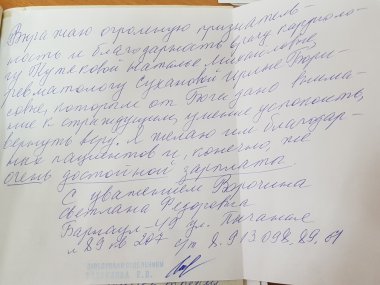 Выражаю огромную признатель-
ность и благодарность врачу кардиоло-
гу Путяковой Наталье Михайловне,
ревматологу Сухановой Ирине Бори-
совне, которым от Бога дано внима-
ние к страждущим, умение успокоить,
вернуть веру. Я желаю им благодар-
ных пациентов и, конечно, же
очень достойной зарплаты
С уважением Ворочина
Светлана Федоровна
Барнаул-49 ул.
д 89 кв 207 с/т 8.913.098.89.61